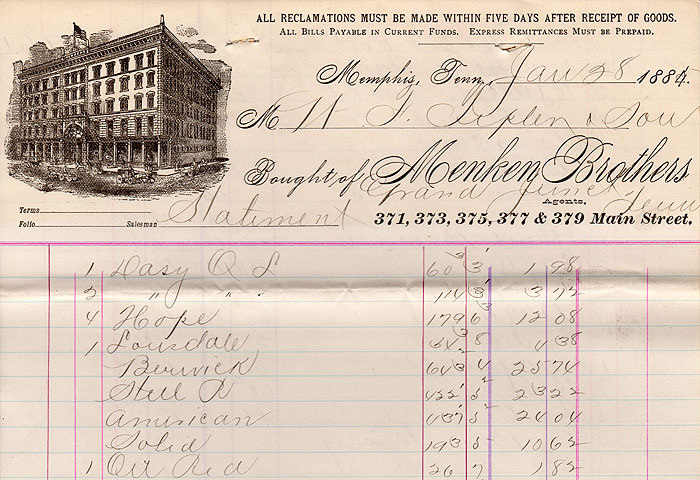 ALL RECLAMATIONS MUST BE MADE WITHIN FIVE DAYS AFTER RECEIPT OF GOODS.
ALL BILLS PAYABLE IN CURRENT FUNDS. EXPRESS REMITTANCES MUST BE PREPAID.
Memphis, Tenn., Jan 28 188
M & Son
Bought of Menken Brothers
Grand Junct Tenn
Agents,
Terms
Statiment
371, 373, 375, 377 & 379 Main Street.
Folio Salesman
1 Dasy Q L 60³ 3' 1 98
2 " " " 114 3 3 72
4 Hope 179³ 6 12 08
1 Lonsdale 8 4 38
Berwick 64³ 4 25 74
Steel R 422' 5 23 22
American 437' 5 24 04
Solid 193 5 10 62
1 Oil Red 26 7 1 82